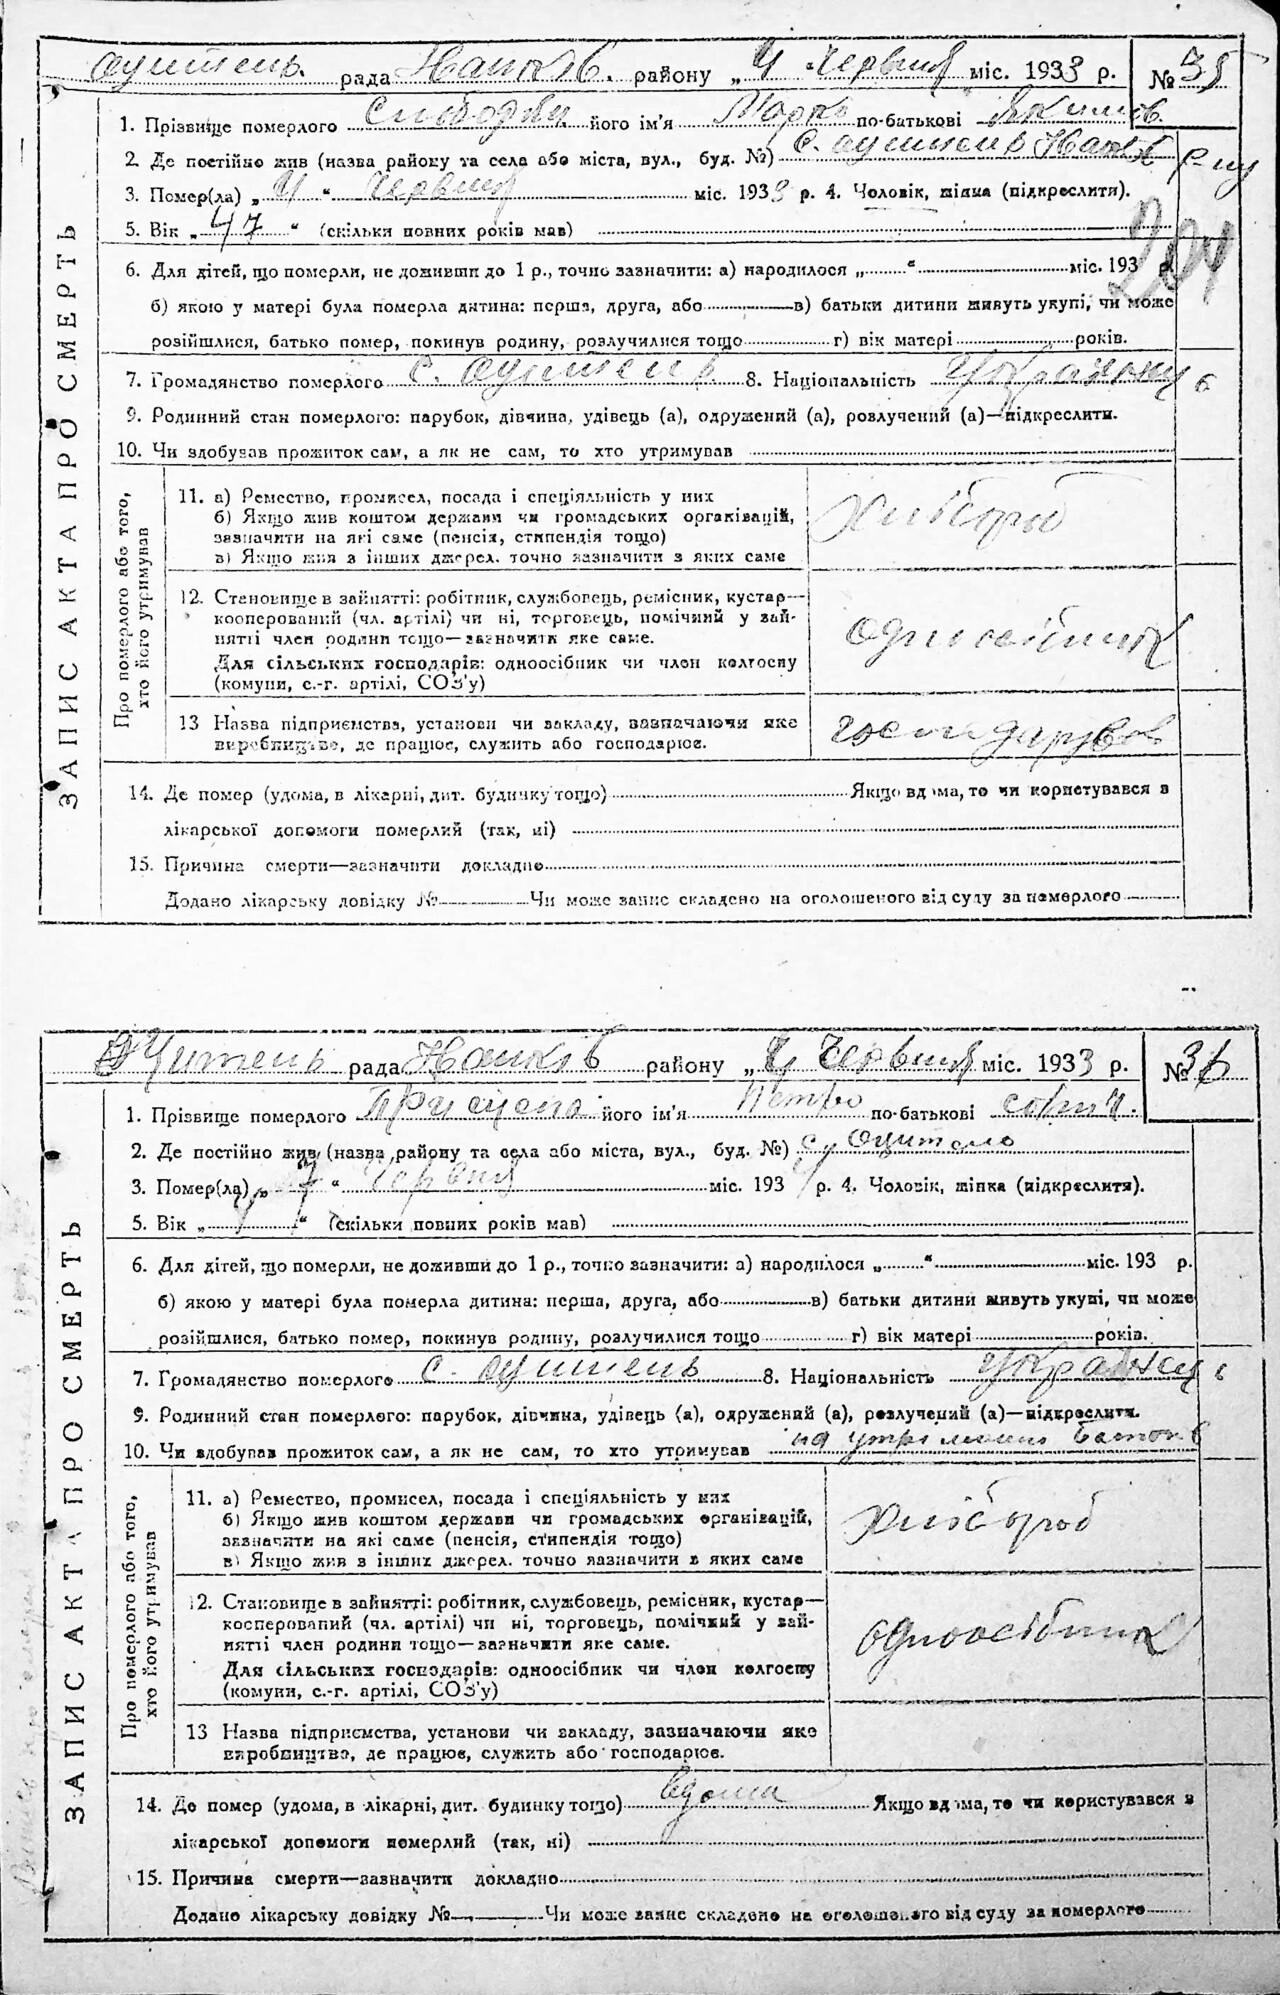 рада району „ 4 Червня міс. 1933 р. № 35
1. Прізвище померлого його ім'я Марко по-батькові
2. Де постійно жив (назва району та села або міста, вул., буд. №) с.
3. Помер(ла) „ 4 “ Червня міс. 1933 р. 4. Чоловік, жінка (підкреслити).
204
5. Вік „ 47 “ (скільки повних років мав)
6. Для дітей, що померли, не доживши до 1 р., точно зазначити: а) народилося „ “ міс. 193 р.
б) якою у матері була померла дитина: перша, друга, або в) батьки дитини живуть укупі, чи може
розійшлися, батько помер, покинув родину, розлучилися тощо г) вік матері років.
7. Громадянство померлого с. 8. Національність
9. Родинний стан померлого: парубок, дівчина, удівець (а), одружений (а), розлучений (а)—підкреслити.
10. Чи здобував прожиток сам, а як не сам, то хто утримував
ЗАПИС АКТА ПРО СМЕРТЬ
Про померлого або того,
хто його утримував
11. а) Ремество, промисел, посада і спеціяльність у них
б) Якщо жив коштом держави чи громадських організацій,
зазначити на які саме (пенсія, стипендія тощо)
в) Якщо жив з інших джерел. точно зазначити з яких саме
Хлібороб
12. Становище в зайнятті: робітник, службовець, ремісник, кустар—
кооперований (чл. артілі) чи ні, торговець, помічний у зай-
нятті член родини тощо—зазначити яке саме.
Для сільських господарів: одноосібник чи член колгоспу
(комуни, с.-г. артілі, СОЗ'у)
одноосібник
13 Назва підприємства, установи чи закладу, зазначаючи яке
виробництво, де працює, служить або господарює.
господарував
14. Де помер (удома, в лікарні, дит. будинку тощо) Якщо вдома, то чи користувався в
лікарської допомоги померлий (так, ні)
15. Причина смерти—зазначити докладно
Додано лікарську довідку № Чи може запис складено на оголошеного від суду за померлого
рада району „ 4 Червня міс. 1933 р. № 36
1. Прізвище померлого його ім'я Петро по-батькові
2. Де постійно жив (назва району та села або міста, вул., буд. №)
3. Помер(ла) „ “ Червня міс. 193 р. 4. Чоловік, жінка (підкреслити).
5. Вік „ “ (скільки повних років мав)
6. Для дітей, що померли, не доживши до 1 р., точно зазначити: а) народилося „ “ міс. 193 р.
б) якою у матері була померла дитина: перша, друга, або в) батьки дитини живуть укупі, чи може
розійшлися, батько помер, покинув родину, розлучилися тощо г) вік матері років.
7. Громадянство померлого с. 8. Національність
9. Родинний стан померлого: парубок, дівчина, удівець (а), одружений (а), розлучений (а)—підкреслити.
10. Чи здобував прожиток сам, а як не сам, то хто утримував на
ЗАПИС АКТА ПРО СМЕРТЬ
Про померлого або того,
хто його утримував
11. а) Ремество, промисел, посада і спеціяльність у них
б) Якщо жив коштом держави чи громадських організацій,
зазначити на які саме (пенсія, стипендія тощо)
в) Якщо жив з інших джерел. точно зазначити з яких саме
Хлібороб
12. Становище в зайнятті: робітник, службовець, ремісник, кустар—
косперований (чл. артілі) чи ні, торговець, помічний у зай-
нятті член родини тощо—зазначити яке саме.
Для сільських господарів: одноосібник чи член колгоспу
(комуни, с.-г. артілі, СОЗ'у)
одноосібник
13 Назва підприємства, установи чи закладу, зазначаючи яке
виробництво, де працює, служить або господарює.
14. Де помер (удома, в лікарні, дит. будинку тощо) вдома Якщо вдома, то чи користувався в
лікарської допомоги померлий (так, ні)
15. Причина смерти—зазначити докладно
Додано лікарську довідку № Чи може запис складено на оголошеного від суду за померлого